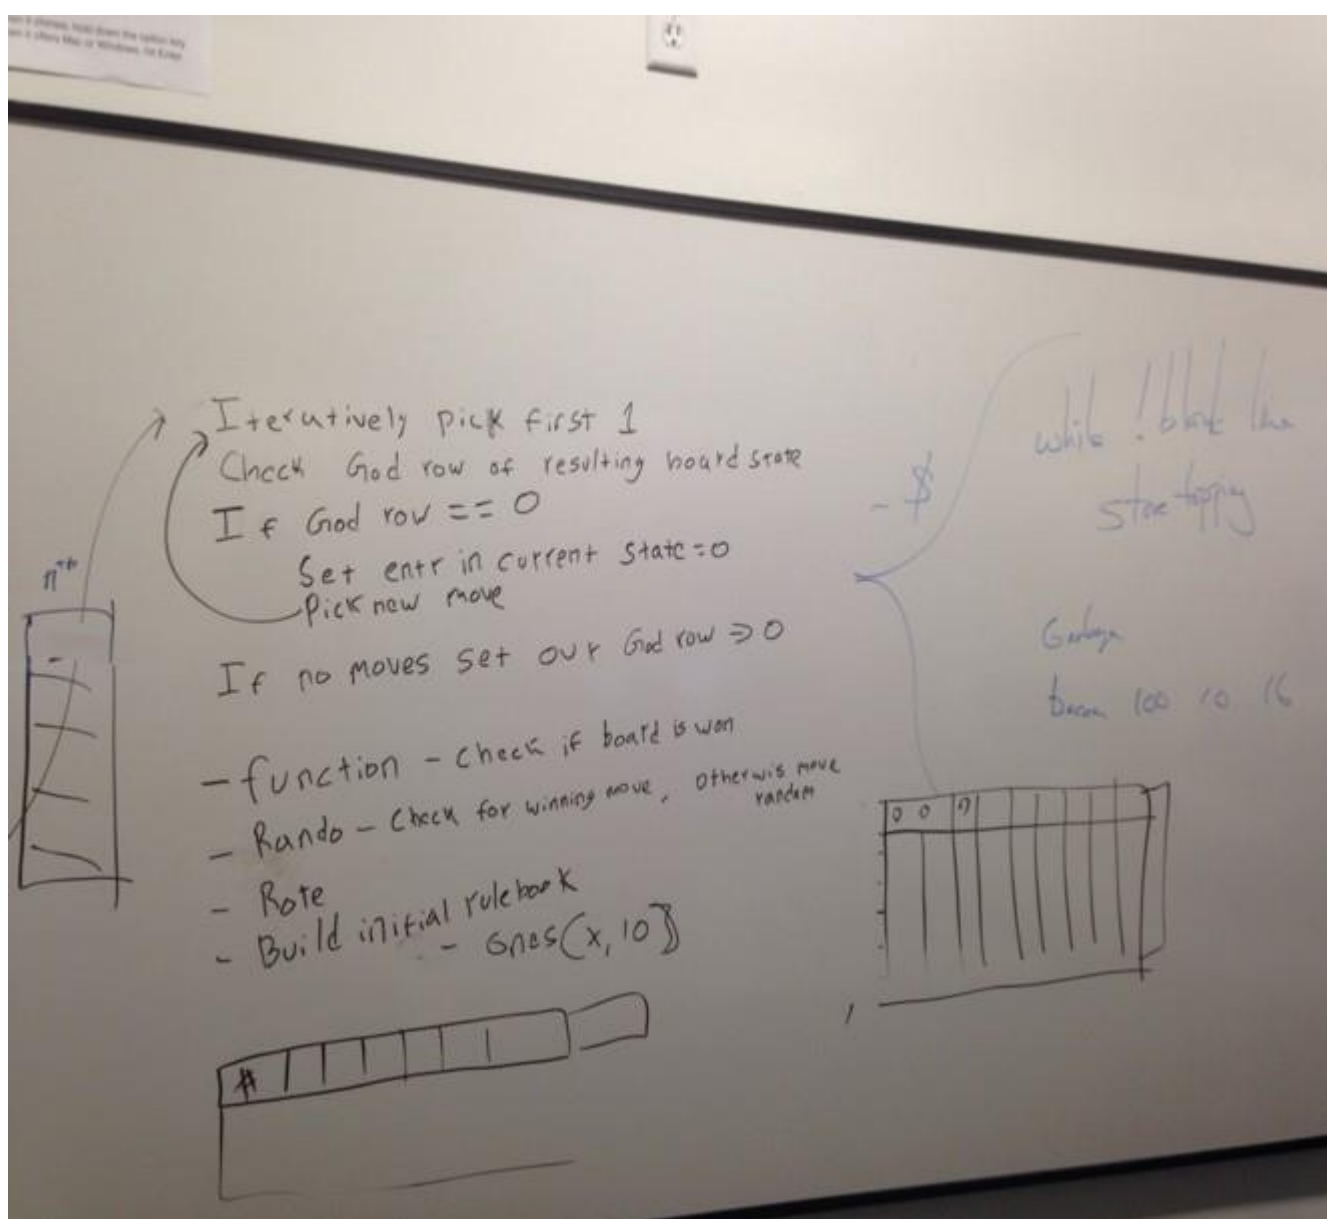 hold down the option key
Mac or Windows, hit Enter
Iteratively pick first 1
Check God row of resulting board state
If God row == 0
Set entr in current state=0
Pick new move
If no moves set our God row => 0
- function - check if board is won
- Rando - Check for winning move, otherwis move
random
- Rote
- Build initial rulebook
- ones(x, 10)
nth
#
- $
while ! blank line
store topping
100 10 16
0 0 0